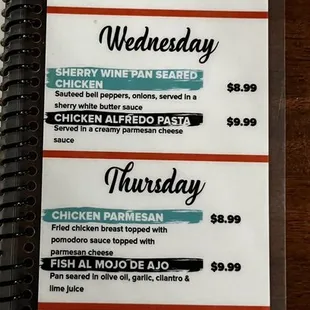 Wednesday
SHERRY WINE PAN SEARED
CHICKEN
$8.99
Sauteed bell peppers, onions, served in a
sherry white butter sauce
CHICKEN ALFREDO PASTA
$9.99
Served in a creamy parmesan cheese
sauce
Thursday
CHICKEN PARMESAN
$8.99
Fried chicken breast topped with
pomodoro sauce topped with
parmesan cheese
FISH AL MOJO DE AJO
$9.99
Pan seared in olive oil, garlic, cilantro &
lime juice